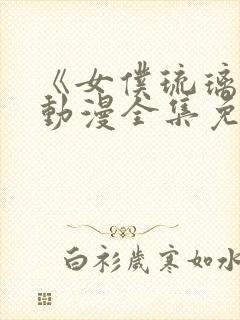 《女僕琉璃
動漫全集免
白衫歲寒如水